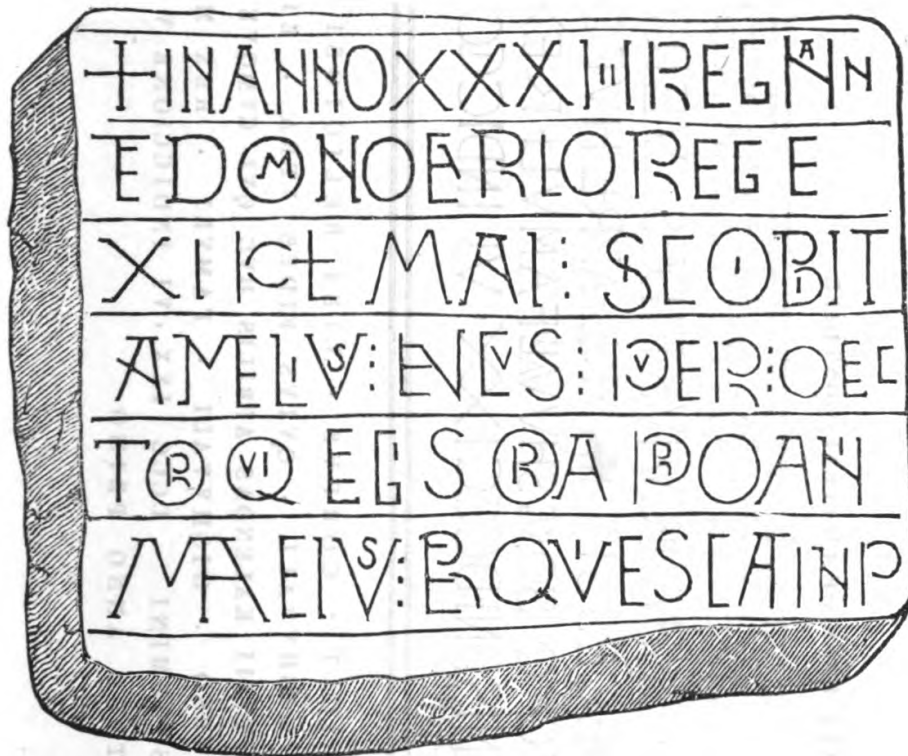 + IN ANNO XXXIIII REGNANN
E DOMNO EARLO REGE
XII KL MAI : SCOBIIT
AMELIVS : ENCVS : PVER : O LEC
TOR QVI LEGIS ORA PRO AN
MA EIVS : E REQVIESCA IN P